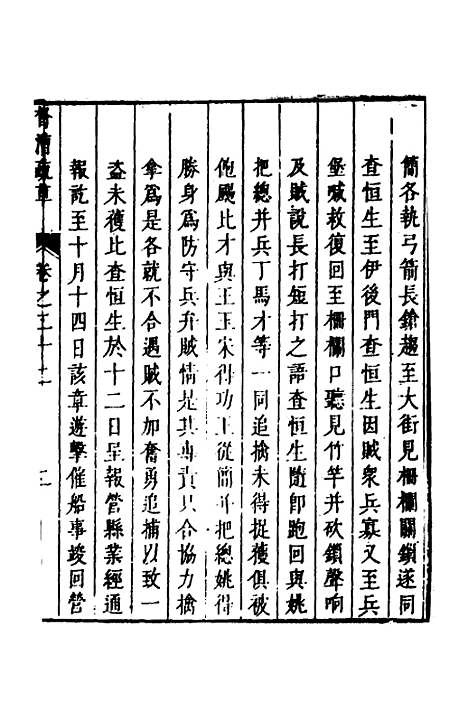 簡各執弓箭長鎗趨至大街見柵欄關鎖遂同
查恒生至伊後門查恒生因賊衆兵寡又至兵
堡喊救復回至柵欄口聽見竹竿并砍鎖聲响
及賊說長打短打之語查恒生隨卽跑回與姚
把總并兵丁馬才等一同追擒未得捉獲俱被
颺比才與王玉宋得功王從簡并把總姚得
勝身爲防守兵弁賊情是其專責只合協力擒
拿爲是各就不合遇賊不加奮勇追捕以致一
盗未獲比查恒生於十二日呈報營縣業經通
報訖至十月十四日該章遊擊催船事竣回營
督漕疏草
卷之二十二